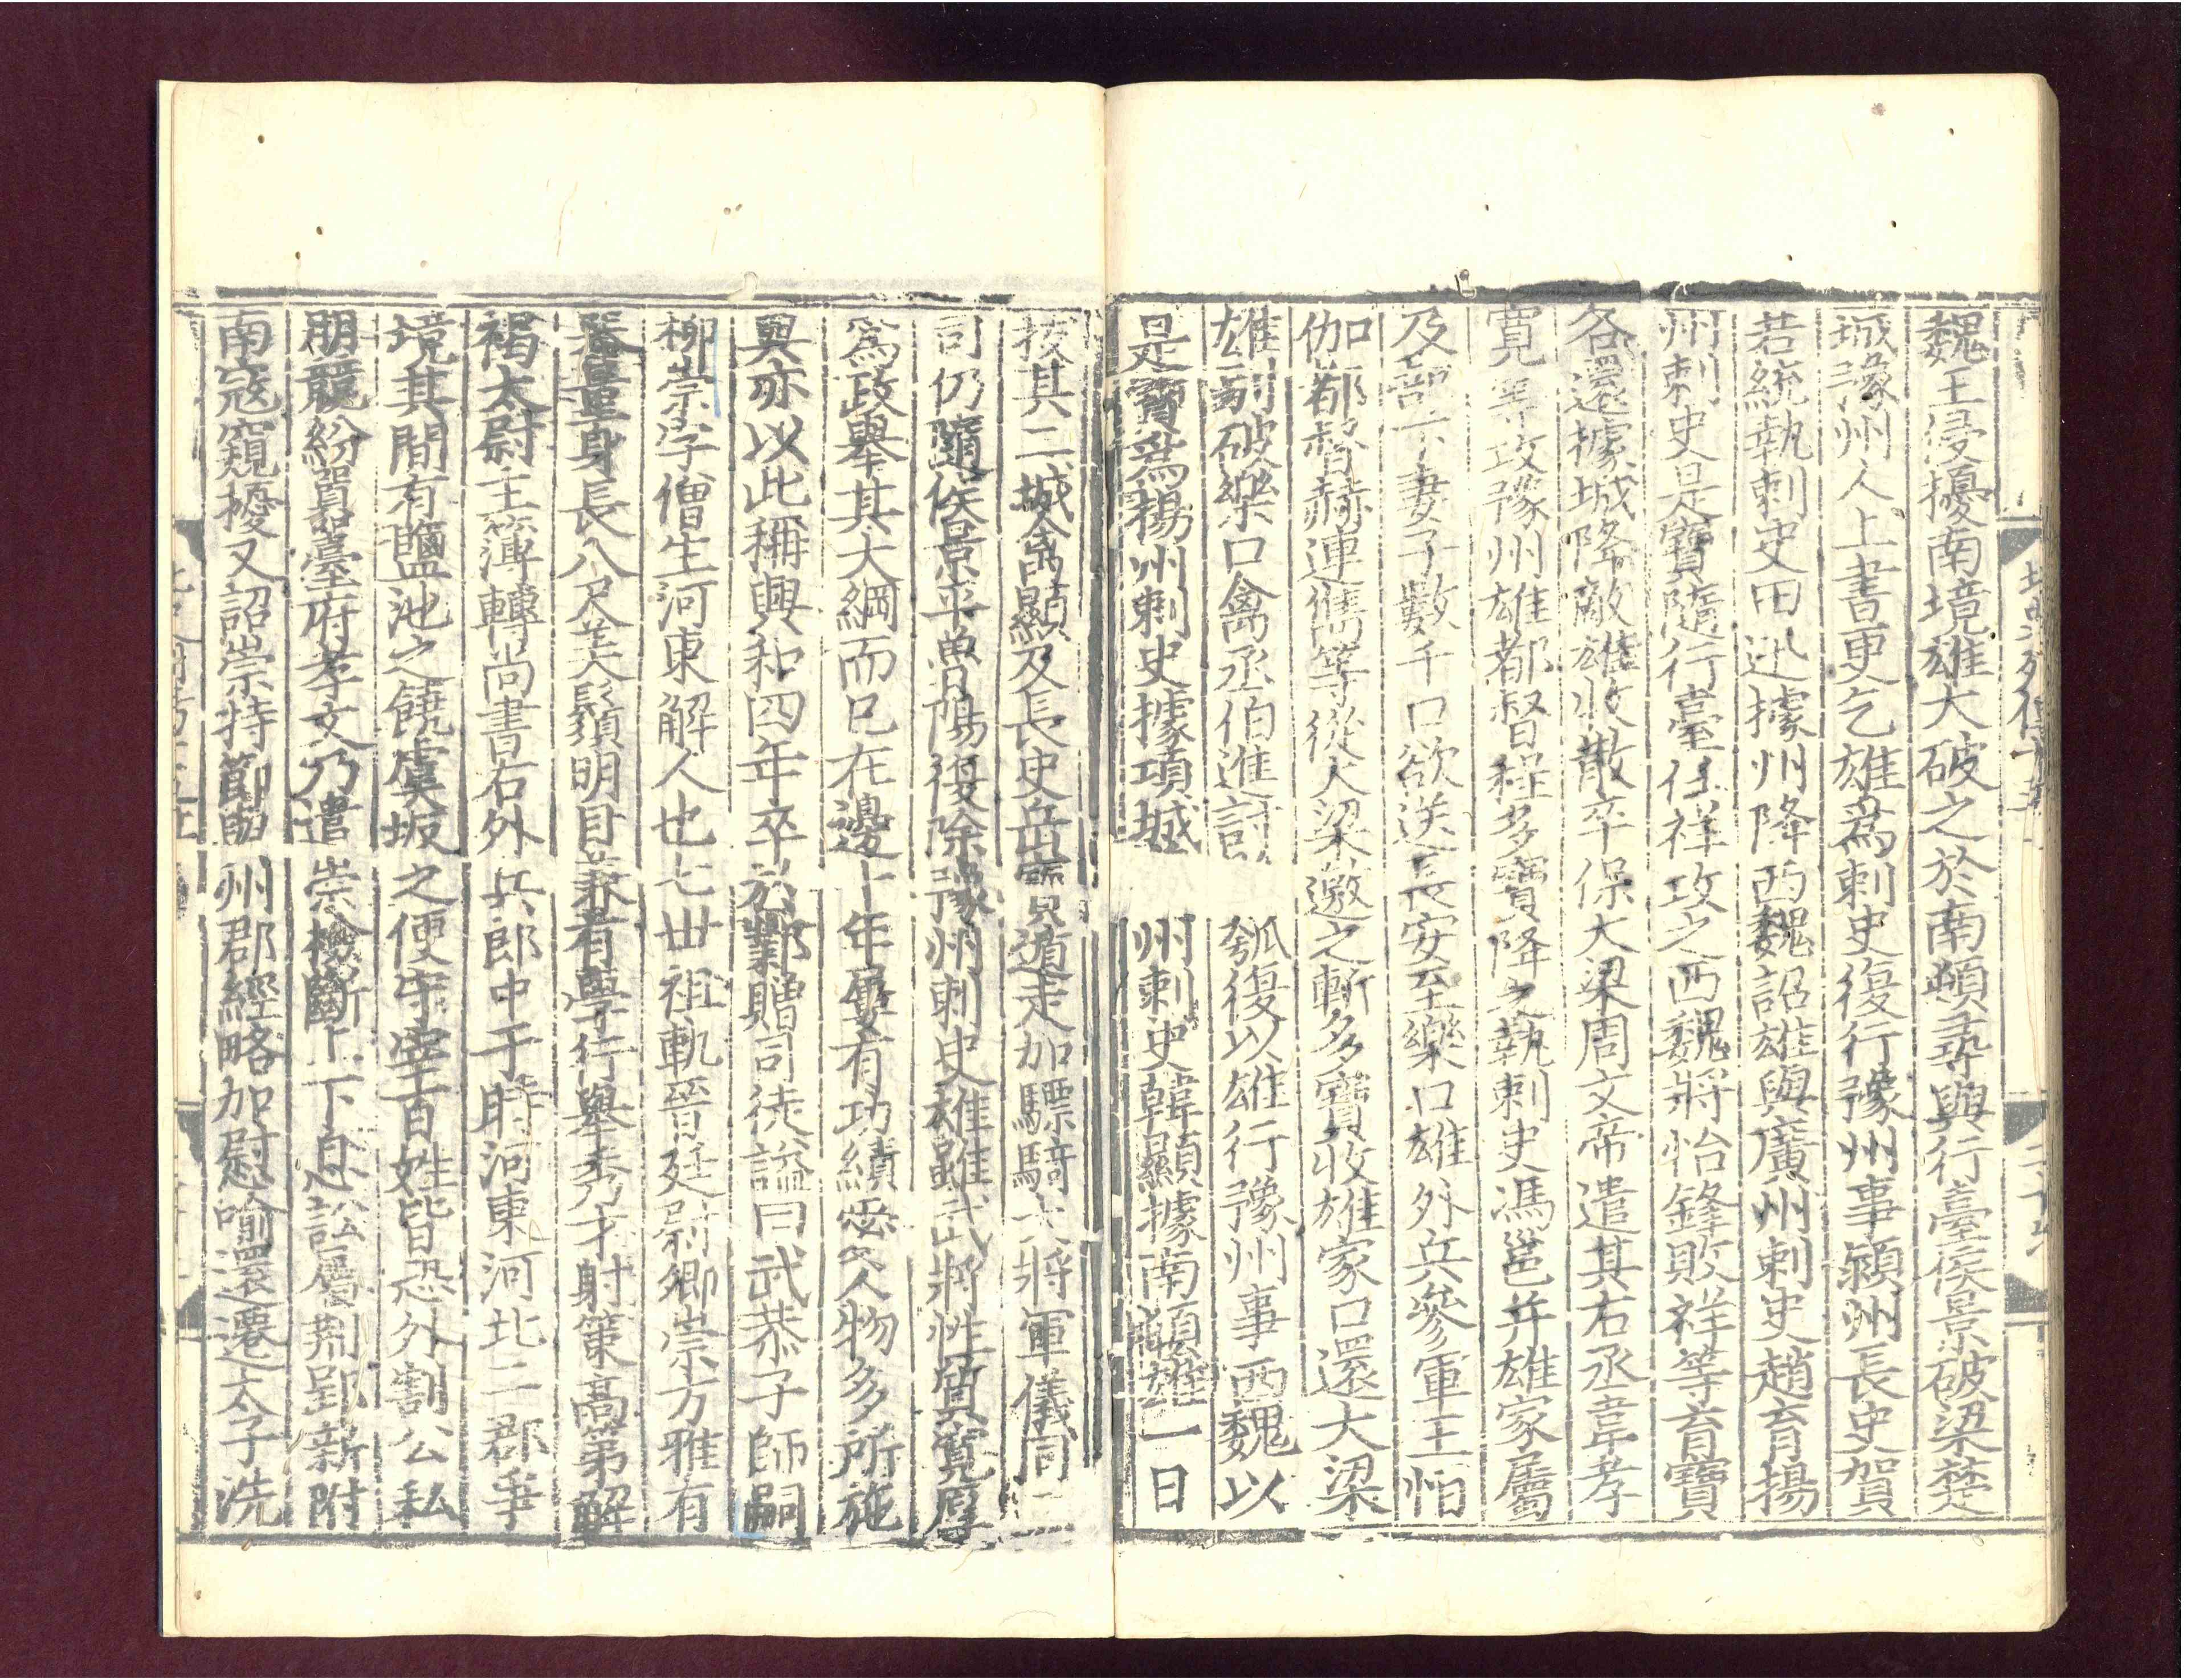 魏王侵擾南境雄大破之於南頓尋與行臺侯景破梁楚
城豫州人上書更乞雄爲刺史復行豫州事潁州長史賀
若統執刺史田迅據州降西魏詔雄與廣州刺史趙育揚
州刺史是寶隨行臺任祥攻之西魏將怡鋒敗祥等育寶
各還據城降敵雄收散卒保大梁周文帝遣其右丞韋孝
寛等攻豫州雄都督程多寶降之執刺史馮邕并雄家屬
及部下妻子數千口欲送長安至樂口雄外兵參軍王怕
伽都督赫連儁等從大梁邀之斬多寶收雄家口還大梁
雄別破樂口禽丞伯進討瓠復以雄行豫州事西魏以
是寶爲揚州刺史據項城州刺史韓顯據南頓雄一日
拔其二城禽顯及長史岳寶遁走加驃騎大將軍儀同三
司仍隨侯景平魯陽復除豫州刺史雄雖武將性質寛厚
爲政舉其大綱而已在邊十年屢有功績愛人物多所施
與亦以此稱興和四年卒於鄴贈司徒謚曰武恭子師嗣
柳崇字僧生河東解人也七世祖軌晉廷尉卿崇方雅有
器量身長八尺美鬚明目兼有學行舉秀才射策高第解
褐太尉主簿轉尚書右外兵郎中于時河東河北二郡爭
境其間有鹽池之饒虞坂之便守宰百姓皆恐外割公私
朋競紛嚻臺府孝文乃遣崇檢斷上下息訟屬荆郢新附
南寇窺擾又詔崇持節與州郡經略加慰喻還遷太子洗